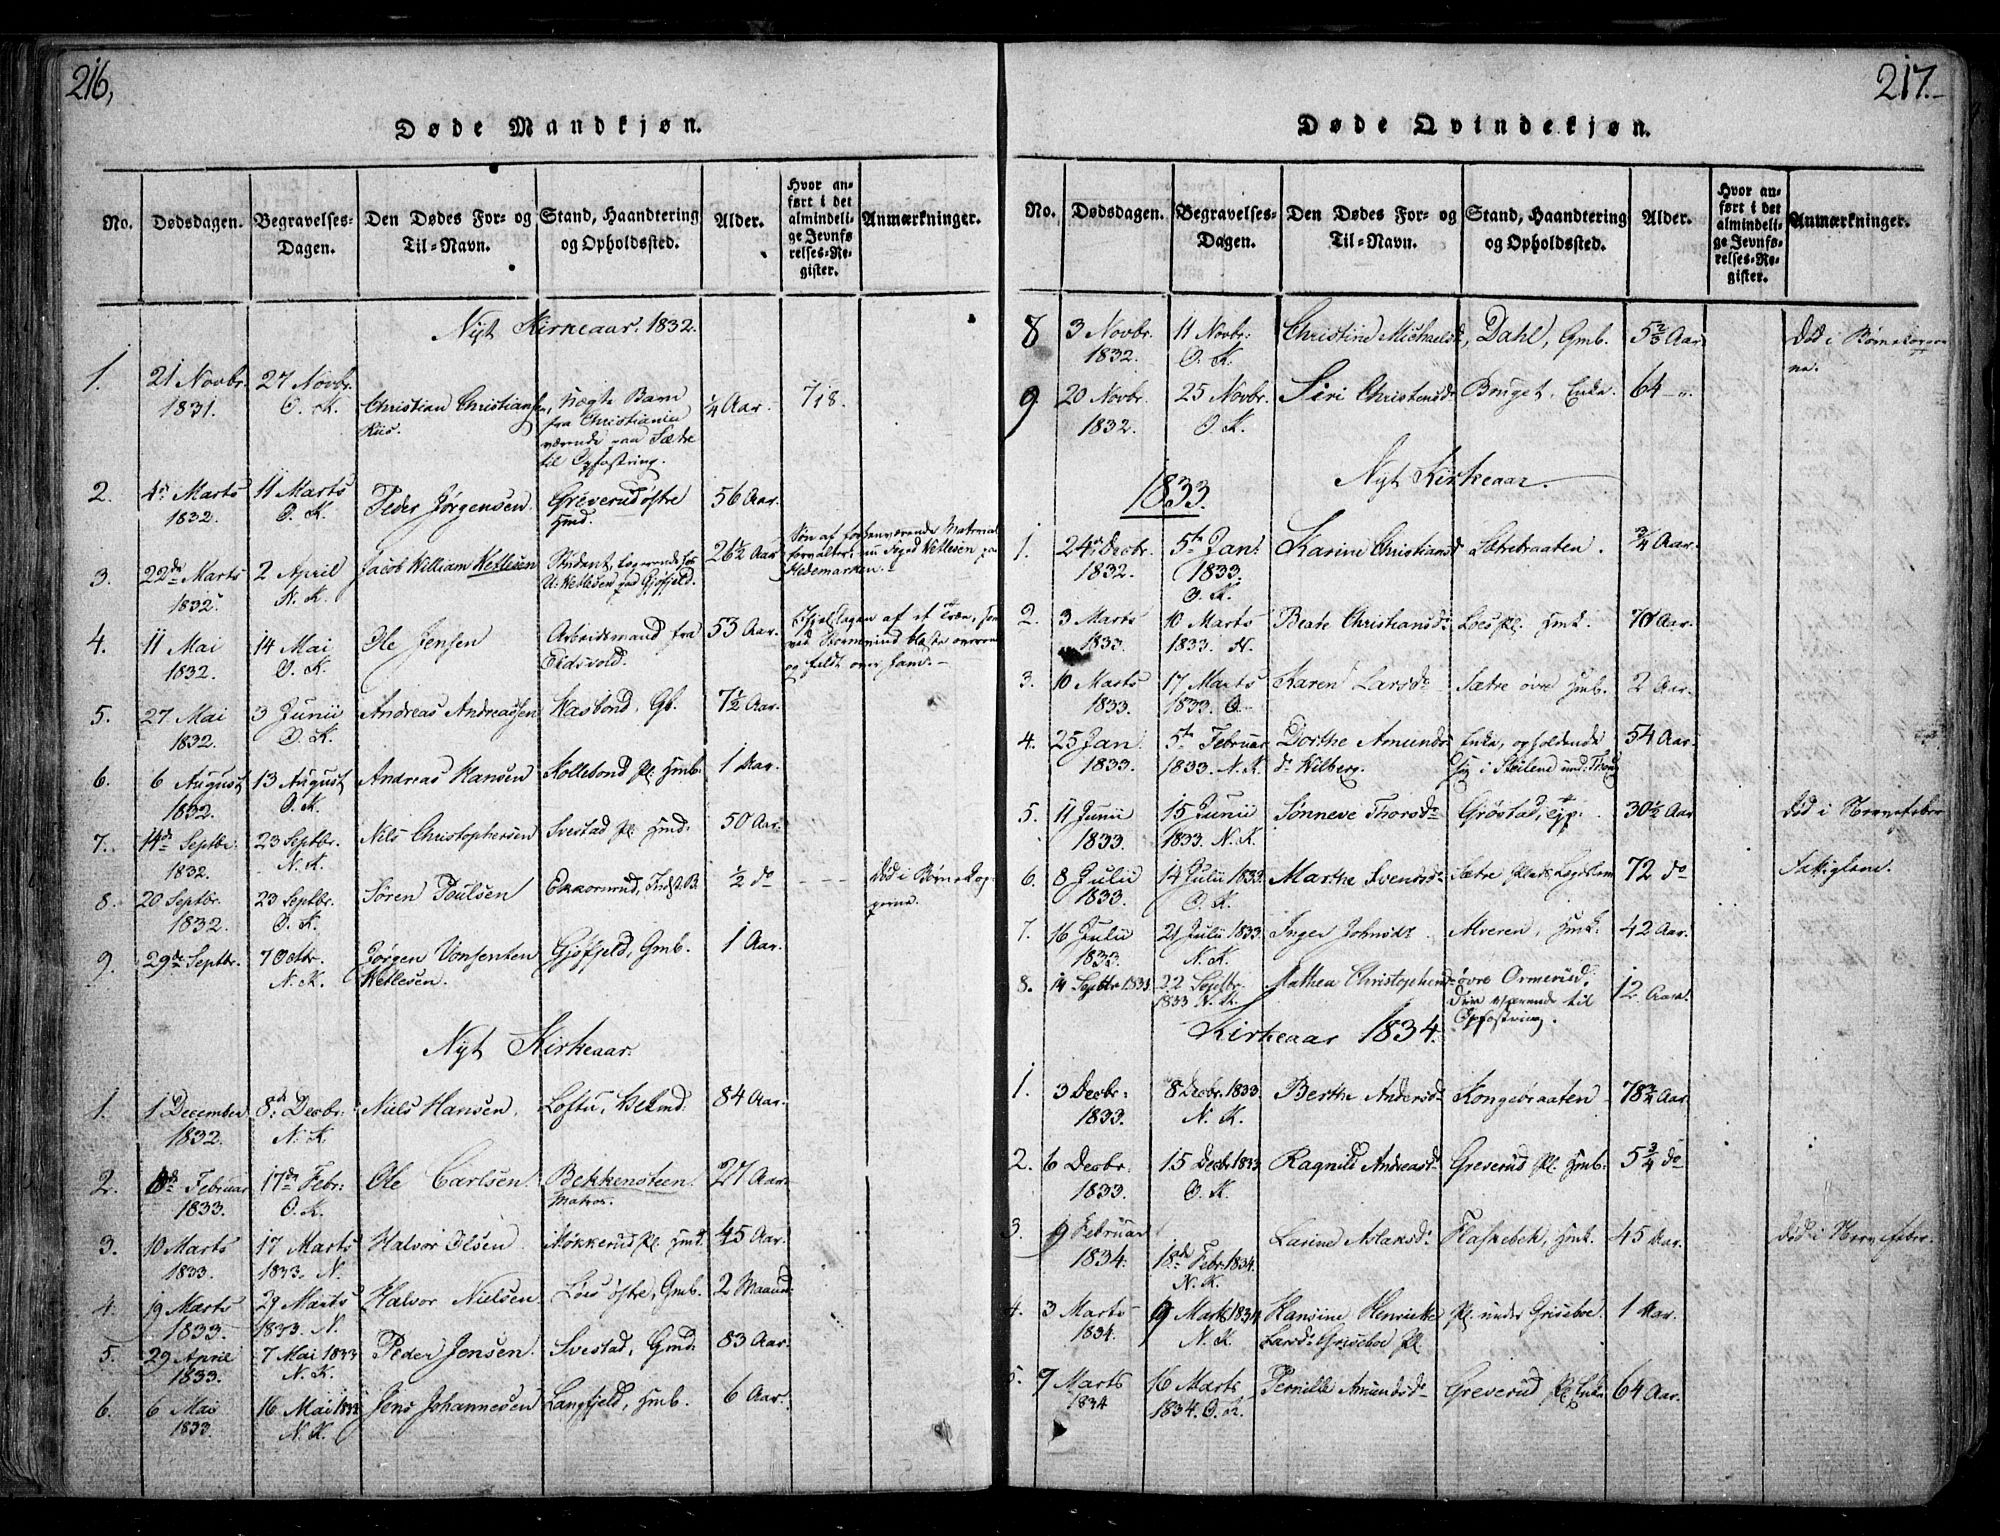 216,
Døde Mandkjøn.
No. Dødsdagen. Begravelses-Dagen. Den Dødes For- og Til-Navn. Stand, Haandtering og Opholdssted. Alder. Hvor anført i det almindelige Jevnførelses-Register. Anmærkninger.
Nyt Kirkeaar. 1832.
1. 21 Novbr. 27 Novbr. Christian Christiansen, uægte Barn ¼ Aar. 718.
1831. O. K. Riis. fra Christiania
værende paa Sætre
til Opfostring.
2. 4de Marts 11 Marts Peder Jørgensen. Greverud østre 56 Aar.
1832. O. K. Hmd.
3. 22de Marts 2 April Jacob William Ketlesen Student, Logerende hos 26½ Aar Søn af forhenværende Material
1832. N. K. U. Ketlesen paa Gjøfjeld. forvalter, nu Foged Ketlesen paa
Hedemarken.
4. 11 Mai 14 Mai Ole Jensen Arbeidsmand fra 53 Aar. Ihjelslagen af et Træe, som
1832. O. K. Eidsvold. ved Stormvind blæste overende
og faldt over ham.
5. 27 Mai 3 Junii Andreas Andreassen Kasbond, Gb. 7½ Aar.
1832. O. K.
6. 6 August 13 August Andreas Hansen Kollebond Pl. Hmb. 1 Aar.
1832. O. K.
7. 14de Septbr. 23 Septbr. Nils Christophersen Svestad Pl. Hmd. 50 Aar.
1832. N. K.
8. 20 Septbr. 23 Septbr. Søren Poulsen Ekornrud, Indst. B. ½ do Død i Børnekop-
1832. O. K. perne.
9. 29de Septbr. 7 Octbr. Jørgen Vonsenten Gjøfjeld, Gmb. 1 Aar.
N. K. Ketlesen.
Nyt Kirkeaar.
1. 1 December 8de Decbr. Niels Hansen, Loftu, 84 Aar.
1832. N. K.
2. Februar 17de Febr. Ole Carlsen Bekkensteen. 27 Aar.
1833. O. K. Matros.
3. 10 Marts 17 Marts Halvor Olsen Møkkerud Pl. Hmd. 45 Aar.
1833. 1833. N.
4. 19 Marts 29 Marts Halvor Nielsen Løes østre, Gmb. 2 Maaned
1833. 1833. N.
5. 29 April 7 Mai 1833 Peder Jensen. Svestad, Gmd. 83 Aar.
1833. N. K.
6. 6 Mai 16 Mai 1833 Jens Johannesen Langfjeld, Hmb. 6 Aar.
1833. N. K.
217.
Døde Qvindekjøn.
No. Dødsdagen. Begravelses-Dagen. Den Dødes For- og Til-Navn. Stand, Haandtering og Opholdssted. Alder. Hvor anført i det almindelige Jevnførelses-Register. Anmærkninger.
8 3 Novbr. 11 Novbr. Christine Michaelsd. Dahl, Gmb. 5⅔ Aar Død i Børnekopper-
1832. O. K. ne.
9. 20 Novbr. 25 Novbr. Siri Christensd. Bruget, Enke. 64 "
1832. O. K.
Nyt Kirkeaar.
1833.
1. 24de Decbr. 5te Jan. Karine Christiansd. Sætrebraaten. ¾ Aar.
1832. 1833.
O. K.
2. 3 Marts 10 Marts Beate Christiansd. Loes Pl. Hmk. 70 Aar.
1833. 1833. N.
3. 10 Marts 17 Marts Karen Larsd. Sætre øvre Hmb. 2 Aar.
1833. 1833. O.
4. 25 Jan. 5te Februar Dorthe Amunds- Enke, opholdende 54 Aar.
1833. 1833. N. K. d. Kilberg. sig i Steilene
5. 11 Junii 15 Junii Sønneve Thorsd. Grøstad, 30½ Aar Død i Nervefeber
1833. 1833. N. K.
6. 8 Julii 14 Julii 1833. Marthe Svensd. Sætre Plads Lægdslem 72 do Fattiglem.
1833. O. K.
7. 16 Julii 21 Julii 1833. Inger Johnsd. Alveren, Hmk. 42 Aar.
1833. N. K.
8. 14 Septbr 1833 22 Septbr. Mathea Christophersd. øvre Ormerud. 12 Aar.
1833 N. K. der værende til
Opfostring.
Kirkeaar 1834.
1. 3 Decbr. 8 Decbr. 1833. Berthe Andersd. Kongebraaten 78¾ Aar.
1833. N. K.
2. 6 Decbr. 15 Decbr 1833. Ragnild Andreasd. Greverud Pl. Hmb. 5¾ do
1833. O. K.
3. 9 Februar Larine Aslaksd. Flaskebek, Hmk. 45 Aar. Død i Nervefeber.
1834. 18de Febr. 1834.
N. K.
4. 3 Marts 9 Marts 1834 Hansine Henriette Pl. under Griseboe. 1 Aar.
1834. N. K. Larsd. Griseboe Pl.
5. 9 Marts 16 Marts Pernille Amundsd. Greverud Pl. Enke 64 Aar.
1834 1834. O. K.